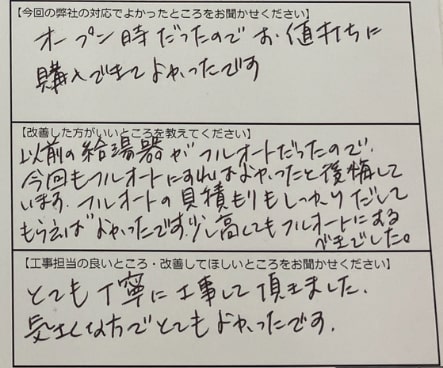 【今回の弊社の対応でよかったところをお聞かせください】
オープン時だったので お値打ちに
購入できてよかったです
【改善した方がいいところを教えてください】
以前の給湯器がフルオートだったので、
今回もフルオートにすればよかったと後悔して
います。フルオートの見積もりもしっかりだして
もらえばよかったです。少し高くてもフルオートにする
べきでした。
【工事担当の良いところ・改善してほしいところをお聞かせください】
とても丁寧に工事して頂きました。
気さくな方でとてもよかったです。